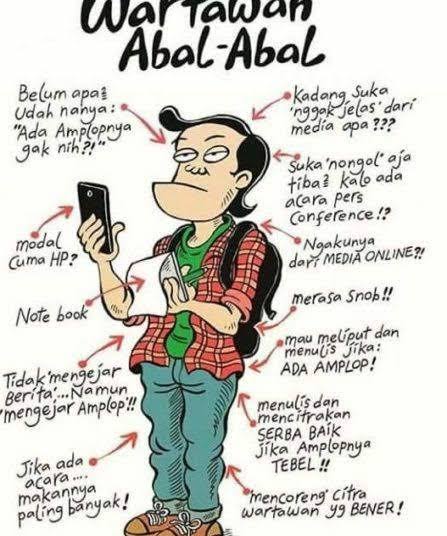 Wartawan
Abal-Abal
Belum apa²
Udah nanya:
"Ada Amplopnya
gak nih?!"
Kadang Suka
'nggak jelas' dari
media apa???
Suka 'nongol' aja
tiba² kalo ada
acara pers
Conference!?
modal
Cuma HP?
Ngakunya
dari MEDIA ONLINE?!
Note book
merasa Snob!!
mau meliput dan
menulis jika:
ADA AMPLOP!
Tidak 'mengejar
Berita'...Namun
'mengejar Amplop'!!
menulis dan
mencitrakan
SERBA BAIK
jika Amplopnya
TEBEL!!
Jika ada
acara....
makannya
paling banyak!
'mencoreng' Citra
wartawan yg BENER!